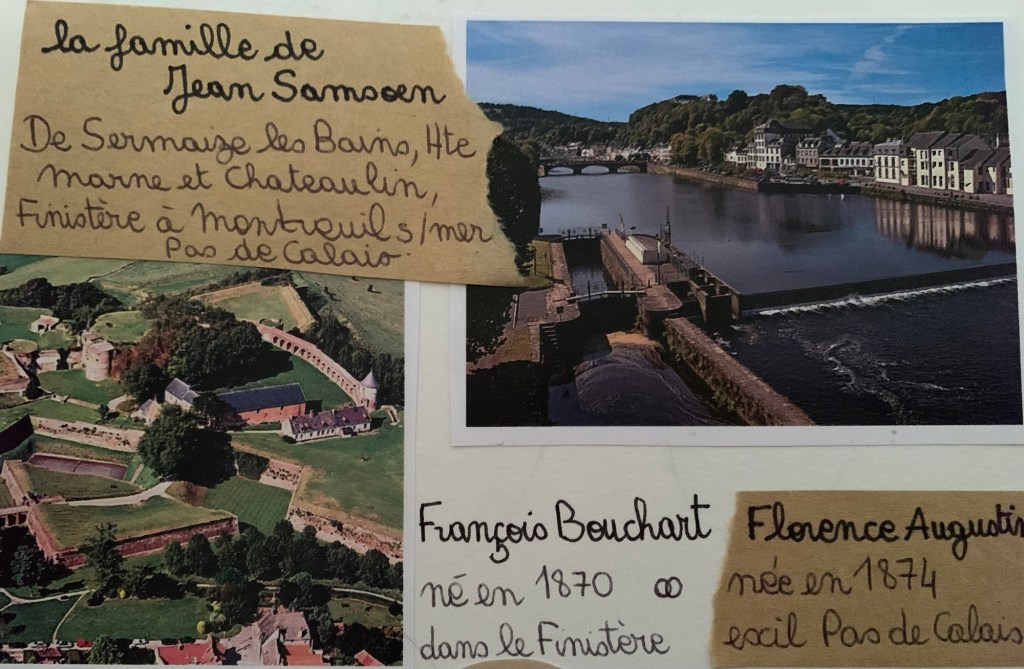 la famille de
Jean Samsoen
De Sermaize les Bains, Hte
marne et Chateaulin,
Finistère à Montreuil s/mer
Pas de Calais
François Bouchart
né en 1870 ꝏ
dans le Finistère
Florence Augustin
née en 1874
excil Pas de Calais